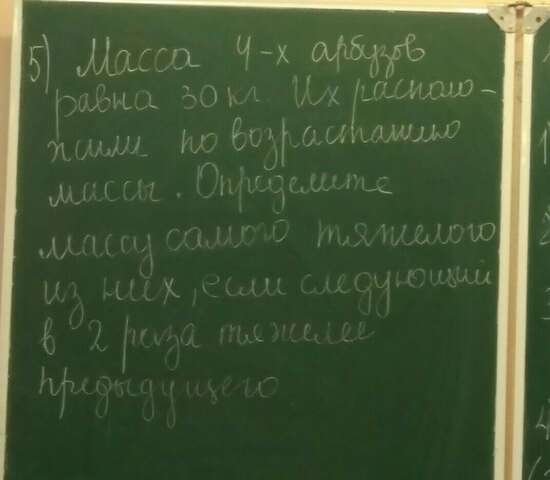 5) Масса 4-х арбузов
равна 30 кг. Их располо-
жили по возрастанию
массы. Определите
массу самого тяжелого
из них, если следующий
в 2 раза тяжелее
предыдущего